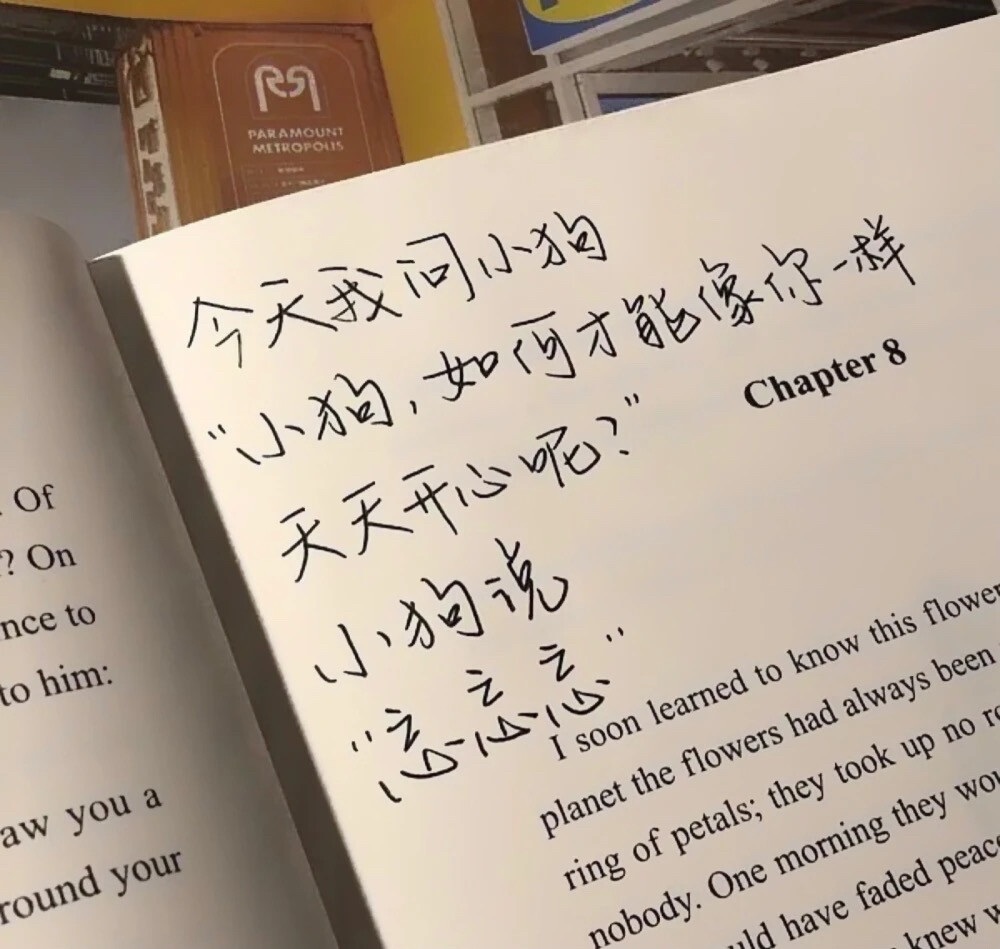 PARAMOUNT
METROPOLIS
今天我问小狗
“小狗,如何才能像你一样
天天开心呢?”
小狗说
“忘忘忘”
. Of
? On
nce to
to him:
aw you a
round your
Chapter 8
I soon learned to know this flower
planet the flowers had always been
ring of petals; they took up no
nobody. One morning they
uld have faded
knew